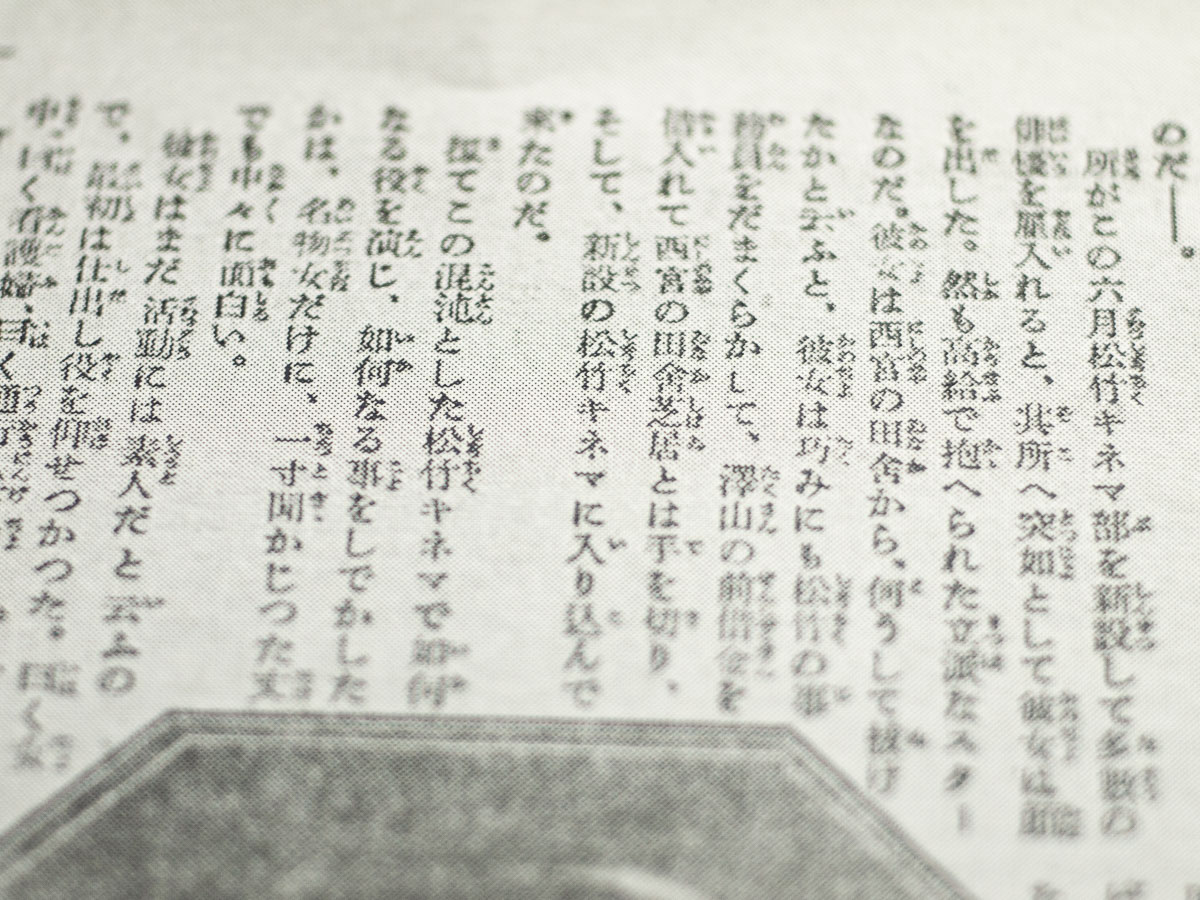 のだ――。
所がこの六月松竹キネマ部を新設して多数の
俳優を雇入れると、其所へ突如として彼女は
を出した。然も高給で抱へられた立派なスター
なのだ。彼女は西宮の田舎から、何うして抜け
たかと云ふと、彼女は巧みにも松竹の事
務員をだまくらかして、澤山の前借金を
借入れて西宮の田舎芝居とは手を切り、
そして、新設の松竹キネマに入り込んで
来たのだ。
扨てこの混沌とした松竹キネマで如何
なる役を演じ、如何なる事をしでかした
かは、名物女だけに、一寸聞かじつた丈
でも中々に面白い。
彼女はまだ活動には素人だと云ふの
で、最初は仕出し役を仰せつかつた。曰く女
中、曰く看護婦、曰く